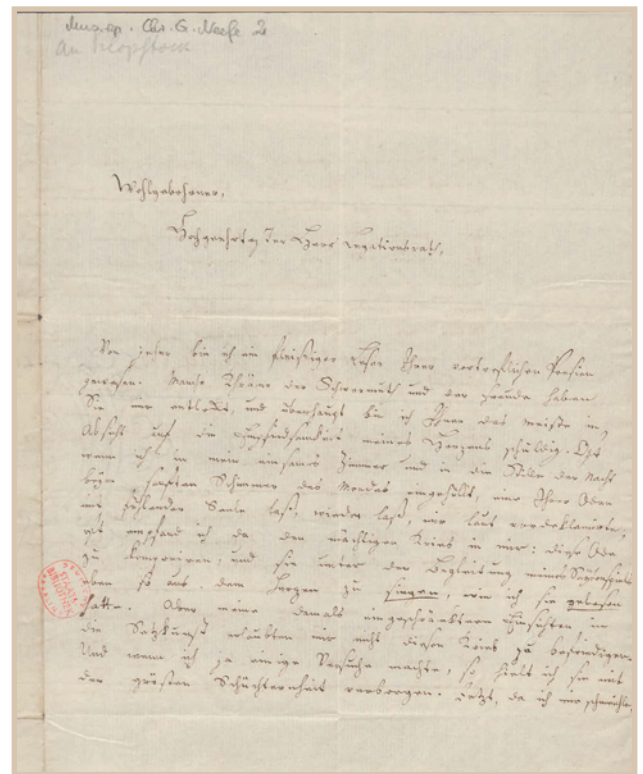 Mus. ep. Chr. G. Neefe 2
An Klopstock
Wohlgebohrner,
Hochgeehrtester Herr Legationsrath,
Von jeher bin ich ein fleißiger Leser Ihrer vortreflichen Poesien
gewesen. Manche Thräne der Schwermuth und der Freude haben
Sie mir entlockt, und überhaupt bin ich Ihnen das meiste in
Absicht auf die Empfindsamkeit meines Herzens schuldig. Oft
wenn ich in mein einsames Zimmer und in die Stille der Nacht
beym sanften Schimmer des Mondes eingehüllt, eine Ihrer Oden
mit fühlender Seele laß, wieder laß, mir laut vordeklamirte;
oft empfand ich da den mächtigen Trieb in mir: diese Ode
zu komponiren, und sie unter der Begleitung meines Saytenspiels
eben so aus dem Herzen zu singen, wie ich sie gelesen
hatte. Aber meine damals eingeschränktern Einsichten in
die Setzkunst erlaubten mir nicht diesen Trieb zu befriedigen.
Und wenn ich ja einige Versuche machte, so hielt ich sie mit
der grösten Schüchternheit verborgen. Jetzt, da ich mir schmeichle,